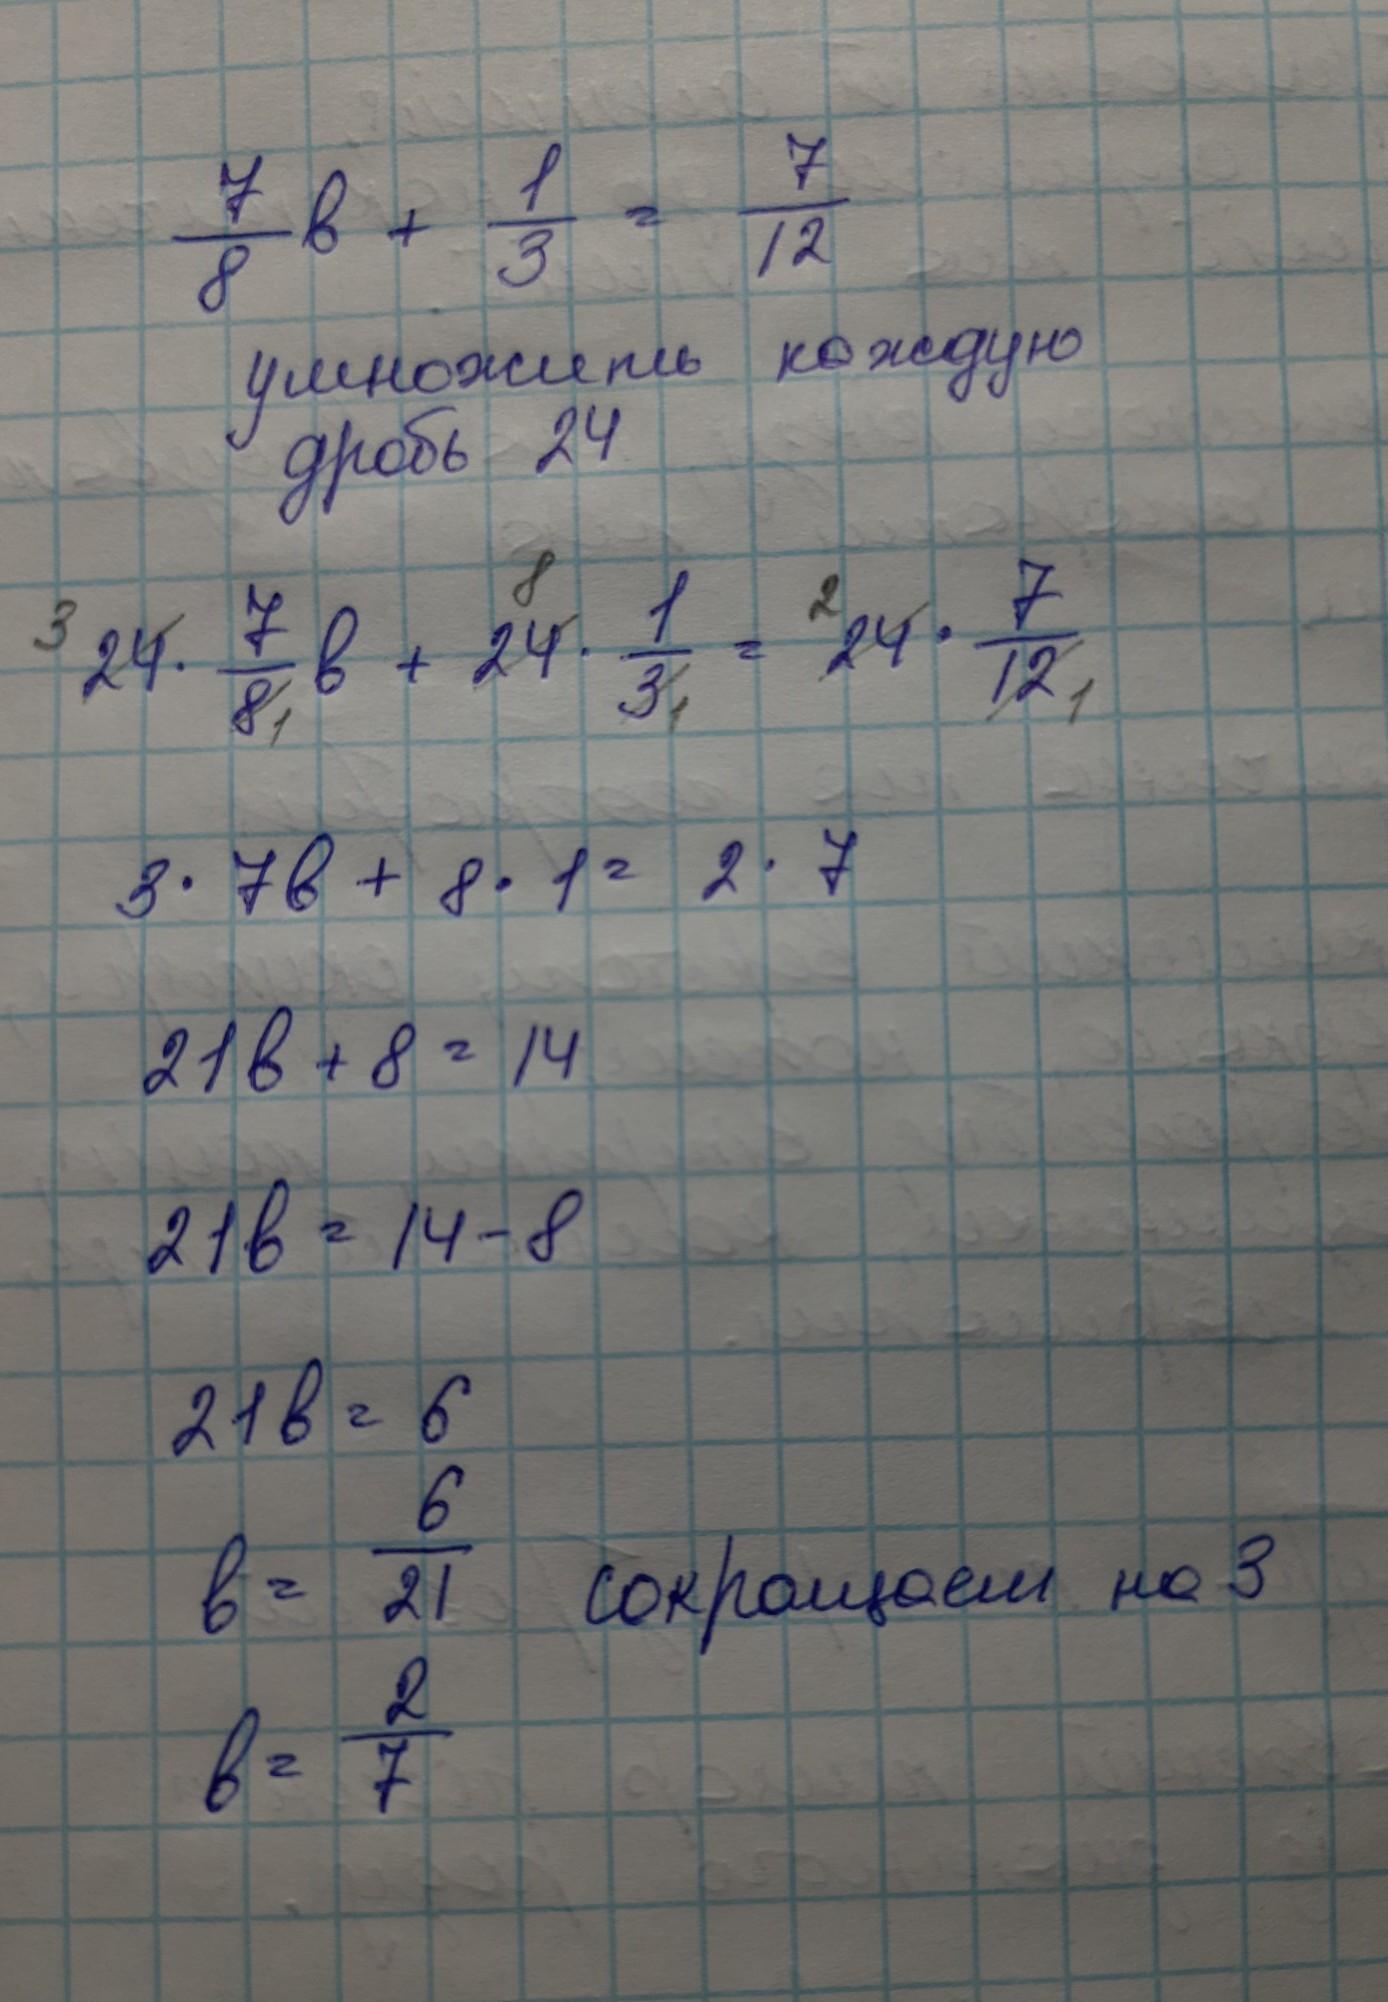 7/8 в + 1/3 = 7/12
умножить каждую
дробь 24
3 24 · 7/8 1 в + 8 24 · 1/3 1 = 2 24 · 7/12 1
3 · 7в + 8 · 1 = 2 · 7
21в + 8 = 14
21в = 14 - 8
21в = 6
в = 6/21 сокращаем на 3
в = 2/7